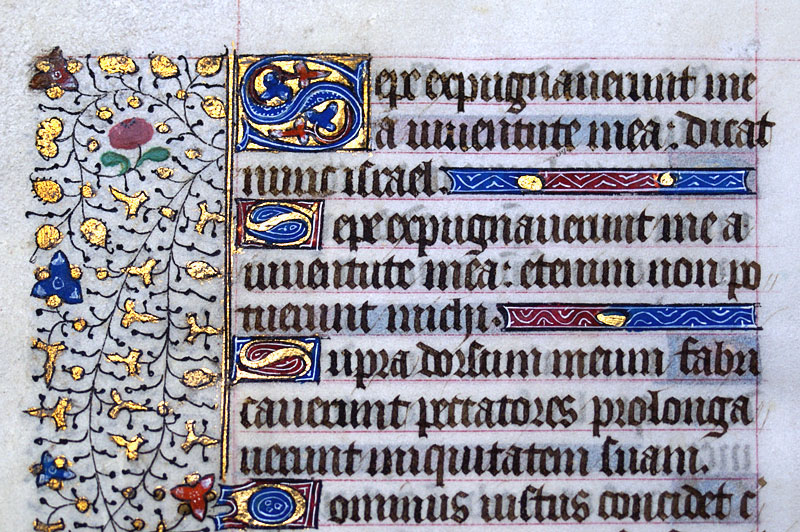 Sepe expugnauerunt me
a iuuentute mea: dicat
nunc israel.
Sepe expugnauerunt me a
iuuentute mea: etenim non po
tuerunt michi.
Supra dorsum meum fabri
cauerunt peccatores prolonga
uerunt iniquitatem suam.
Dominus iustus concidet c